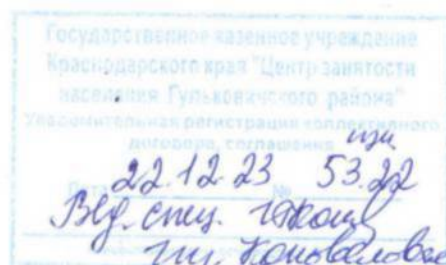 Государственное казенное учреждение
Краснодарского края "Центр занятости
населения Гулькевичского района"
Уведомительная регистрация коллективного
договора, соглашения
22.12.23 № 53.22
Вед. спец.
Коновалова